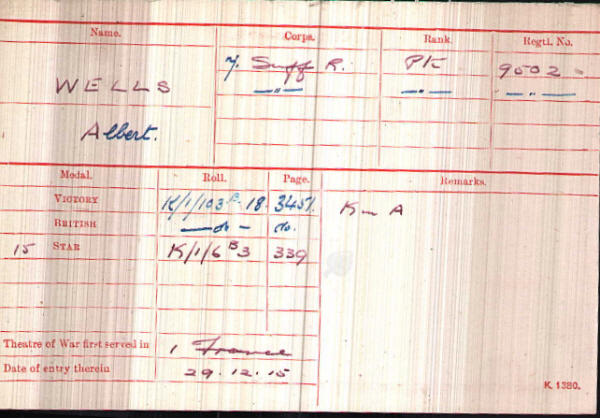 Name. Corps. Rank. Regtl. No.
WELLS 7. Suff R. Pte 9502
—"— —"— —"—
Albert.
Medal. Roll. Page. Remarks.
VICTORY K/1/103 B 18. 3451. K in A
BRITISH —do— do.
15 STAR K/1/6 B3 339
Theatre of War first served in 1 France
Date of entry therein 29.12.15
K 1380.